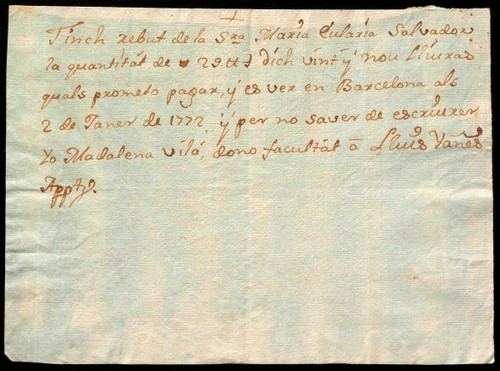 +
Tinch rebut de la Sra Maria Eularia Salvador
la quantitát de 29 ll dich vint y nou Lliuras
quals prometo pagar, y es ver en Barcelona als
2 de Janer de 1772, y per no saver de escriurer
Yo Madalena vilá, dono facultát â Lluis Yañes